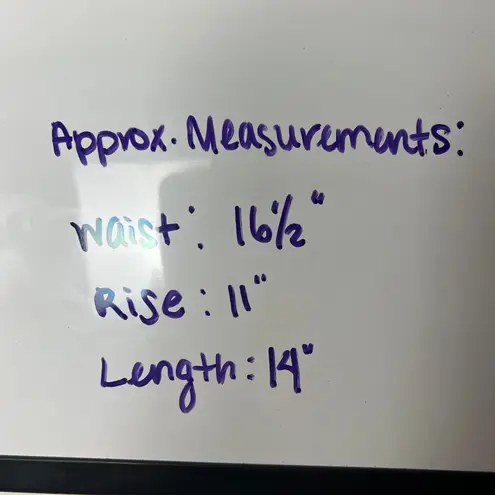 Approx. Measurements:
Waist: 16½"
Rise: 11"
Length: 14"